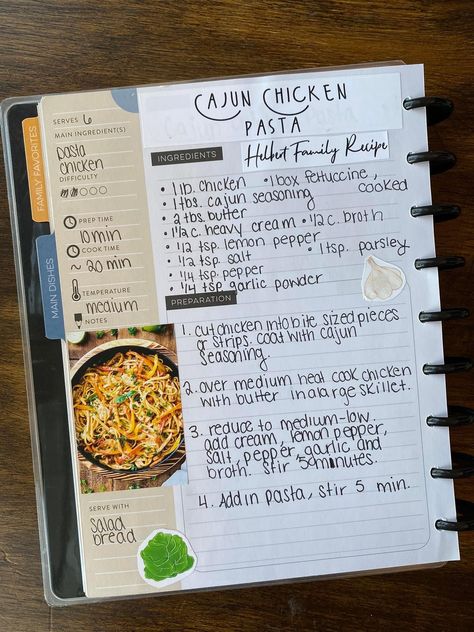 CAJUN CHICKEN
PASTA
Helbet Family Recipe
FAMILY FAVORITES
MAIN DISHES
SERVES 6
MAIN INGREDIENT(S)
pasta
chicken
DIFFICULTY
PREP TIME
10 min
COOK TIME
~ 20 min
TEMPERATURE
medium
NOTES
SERVE WITH
salad
bread
INGREDIENTS
• 1 lb. chicken • 1 box fettuccine, cooked
• 1 tbs. cajun seasoning
• 2 tbs. butter
• 1 1/2 c. heavy cream • 1/2 c. broth
• 1/2 tsp. lemon pepper • 1 tsp. parsley
• 1/2 tsp. salt
• 1/4 tsp. pepper
• 1/4 tsp garlic powder
PREPARATION
1. cut chicken into bite sized pieces
or strips. coat with cajun
seasoning.
2. over medium heat cook chicken
with butter in a large skillet.
3. reduce to medium-low.
add cream, lemon pepper,
salt, pepper, garlic and
broth. stir 5 minutes.
4. Add in pasta, stir 5 min.